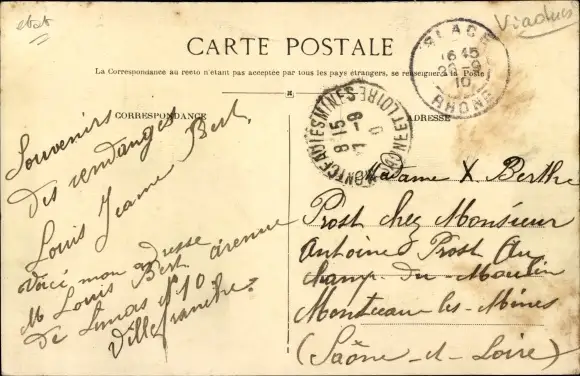 état
Viaduc
CARTE POSTALE
La Correspondance au recto n'étant pas acceptée par tous les pays étrangers, se renseigner à la Poste
CORRESPONDANCE
ADRESSE
BLACÉ
16 45
10
RHONE
MONTCEAU-LES-MINES
SAONE-ET-LOIRE
8 15
Souvenirs
Des vendanges
Louis Jeanne Bert.
Voici mon adresse
M Louis Bert avenue
De Limas N° 10
Villefranche
Madame X Berthe
Prost chez Monsieur
Antoine Prost Au
champ-du-Moulin
Montceau-les-Mines
(Saône-et-Loire)